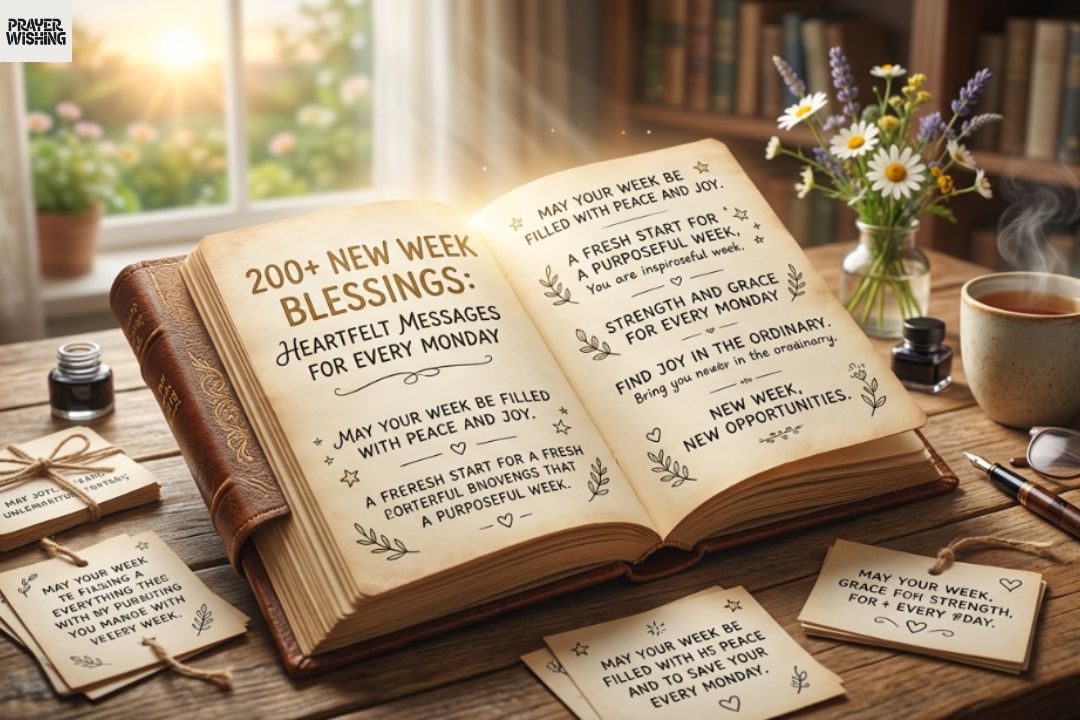 PRAYER
WISHING
200+ NEW WEEK
BLESSINGS:
HEARTFELT MESSAGES
FOR EVERY MONDAY
MAY YOUR WEEK BE FILLED
WITH PEACE AND JOY.
A FRERESH START FOR A FRESH
PORTERFUL BNOVENGS THAT
A PURPOSEFUL WEEK.
MAY YOUR WEEK BE
FILLED WITH PEACE AND JOY.
A FRESH START FOR
A PURPOSEFUL WEEK,
You are inspiroseful week.
STRENGTH AND GRACE
FOR EVERY MONDAY
FIND JOY IN THE ORDINARY.
Bring you in the oradinary.
NEW WEEK,
NEW OPPORTUNITIES.
MAY
MAY YOUR WEEK
TE A
EVERYTHING THEG
WITH
YOU MANOE WITH
WEEK.
MAY YOUR WEEK BE
FILLED WITH HS PEACE
AND TO SAVE YOUR
EVERY MONDAY.
MAY YOUR WEEK,
GRACE FOR STRENGTH,
FOR + EVERY